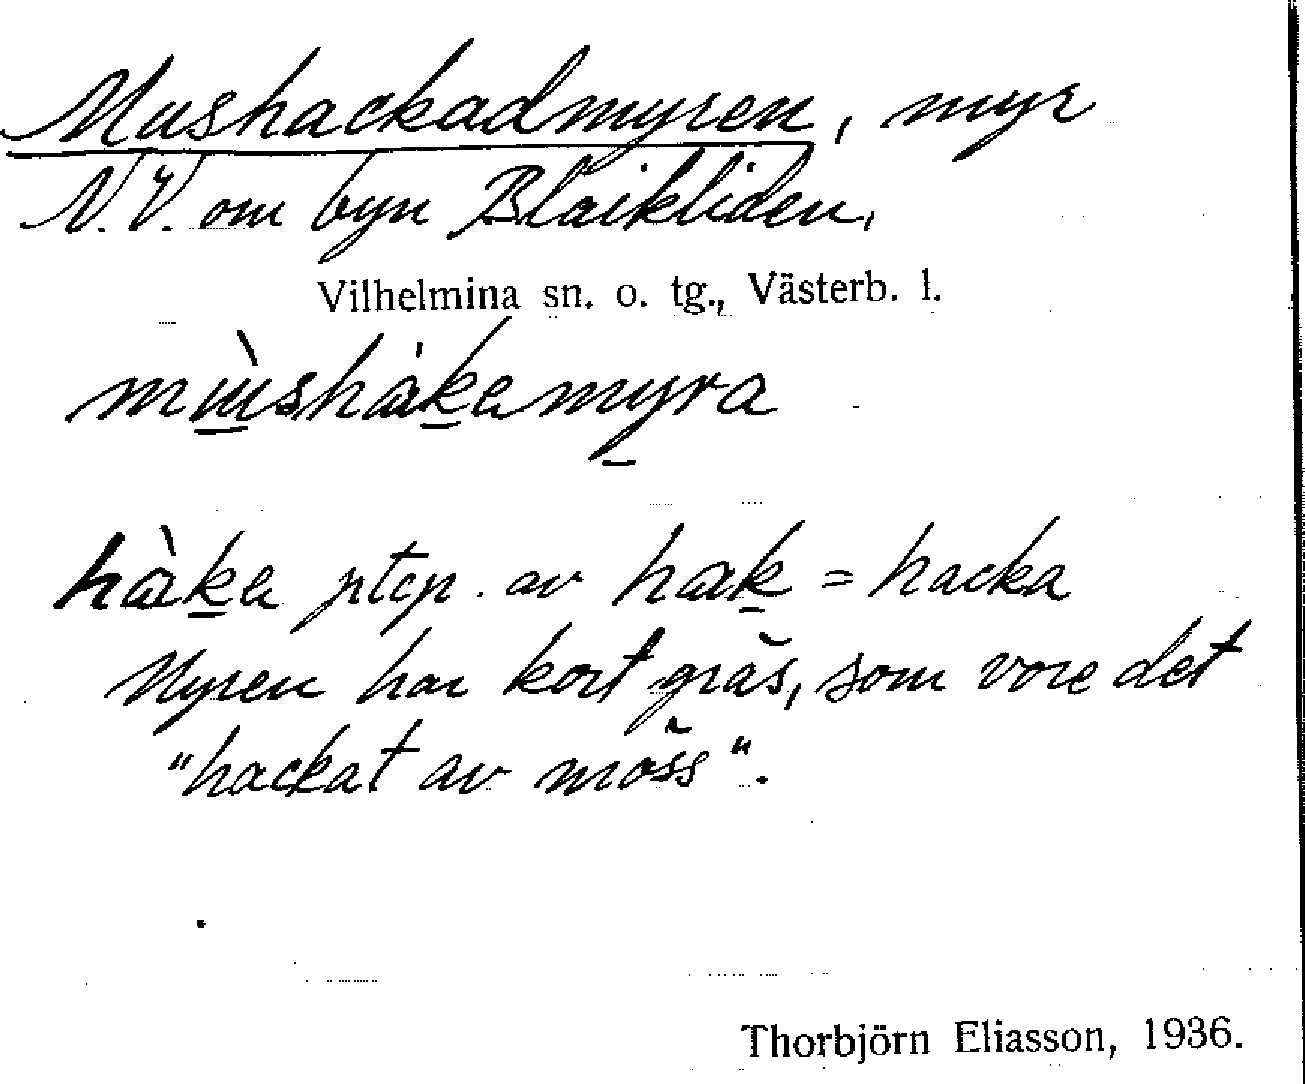 Mushackadmyren, myr
N.V. om byn Blaikliden,
Vilhelmina sn. o. tg., Västerb. l.
mùshákamyra
hàka ptcp. av hak = hacka
Myren har kort gräs, som vore det
"hackat av möss".
Thorbjörn Eliasson, 1936.